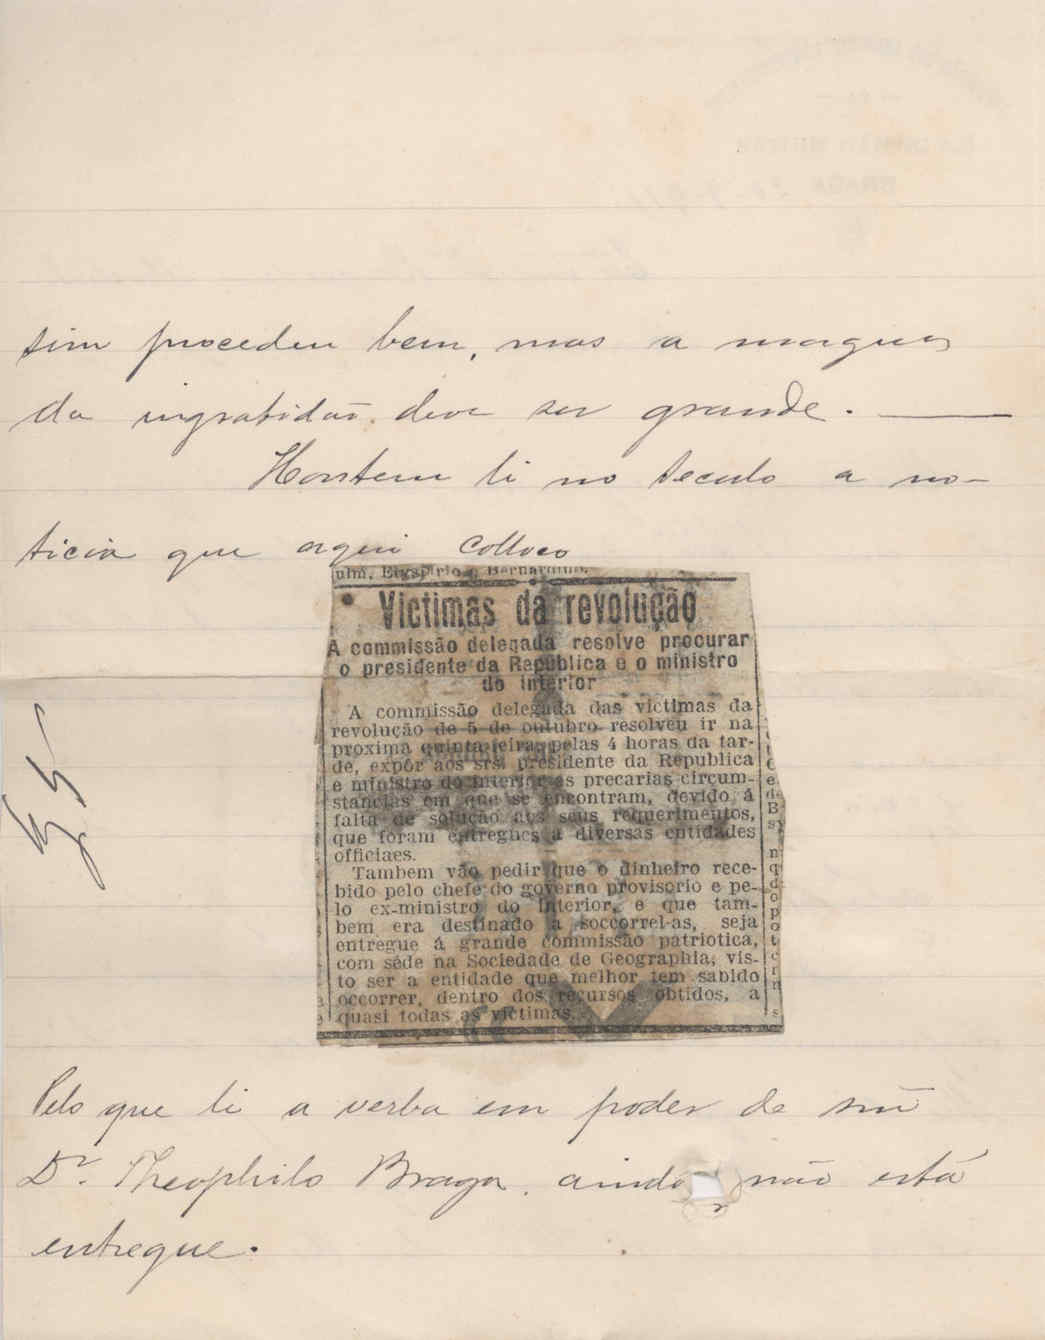 sim procedeu bem, mas a magua
da ingratidão deve ser grande.
Hontem li no Seculo a no-
ticia que aqui colloco
Victimas da revolução
A commissão delegada resolve procurar
o presidente da Republica e o ministro
do interior
A commissão delegada das victimas da
revolução de 5 de outubro resolveu ir na
proxima quinta feira, pelas 4 horas da tar-
de, expôr aos srs. presidente da Republica
e ministro do interior as precarias circum-
stancias em que se encontram, devido á
falta de solução aos seus requerimentos,
que foram entregues a diversas entidades
officiaes.
Tambem vão pedir que o dinheiro rece-
bido pelo chefe do governo provisorio e pe-
lo ex-ministro do interior, e que tam-
bem era destinado a soccorrel-as, seja
entregue á grande commissão patriotica,
com séde na Sociedade de Geographia, vis-
to ser a entidade que melhor tem sabido
occorrer, dentro dos recursos obtidos, a
quasi todas as victimas.
Pelo que li a verba em poder de
Dr. Theophilo Braga, ainda não está
entregue.